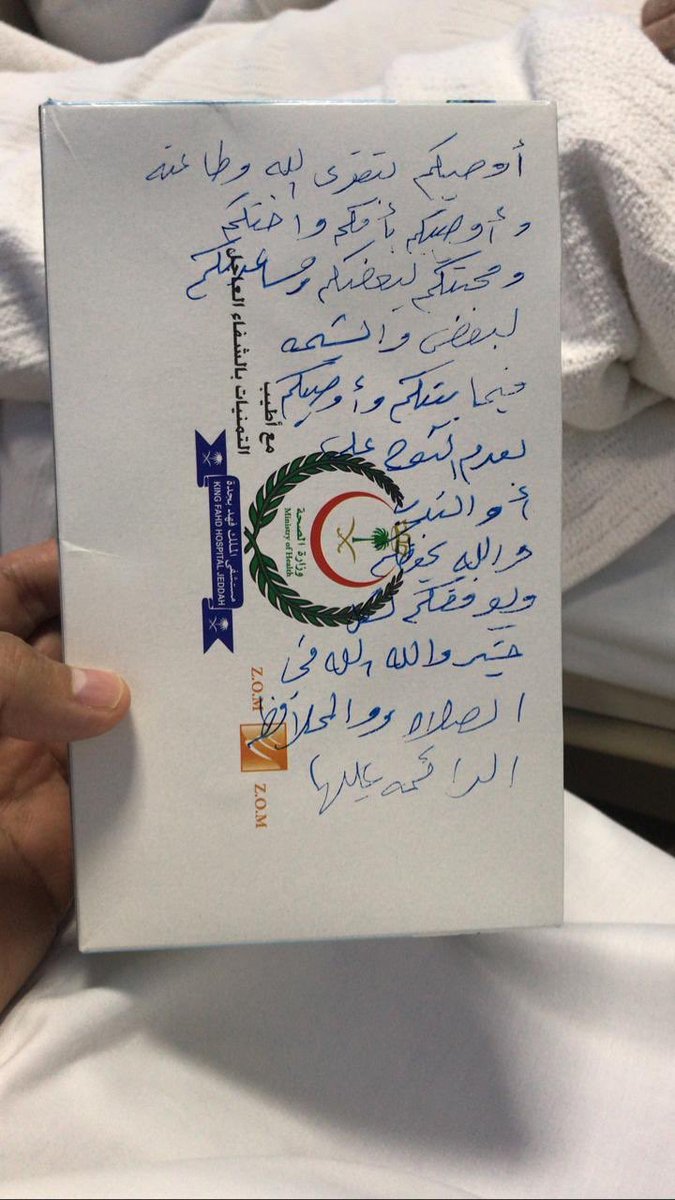 أوصيكم بتقوى الله وطاعته
وأوصيكم بأمكم واختكم
ومحبتكم لبعضكم ومساعدتكم
لبعض
فيما بينكم وأوصيكم
بعدم النوح علي
أو الندب
والله يحفظكم
ويوفقكم لكل
خير والله الله في
الصلاه والمحافظ
الدائمه عليها
مع أطيب
التمنيات بالشفاء العاجل
مستشفى الملك فهد بجدة
KING FAHD HOSPITAL JEDDAH
وزارة الصحة
Ministry of Health
Z.O.M
Z.O.M